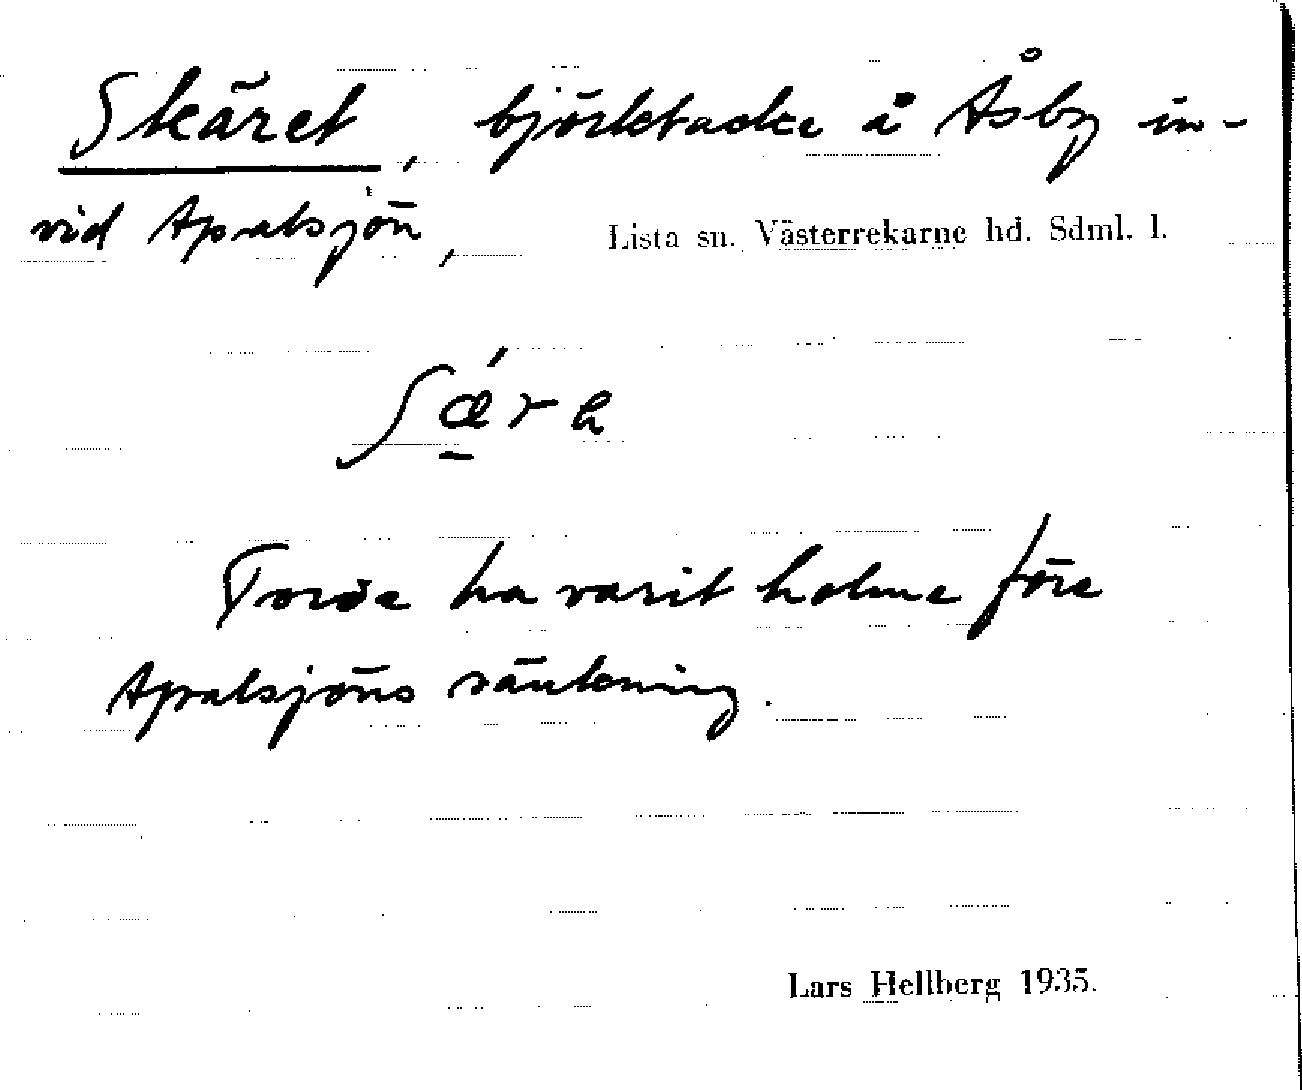 Skäret, björkbacke å Åsby in-
vid Apalsjön, Lista sn. Västerrekarne hd. Sdml. l.
Torde ha varit holme före
Apalsjöns sänkning.
Lars Hellberg 1935.